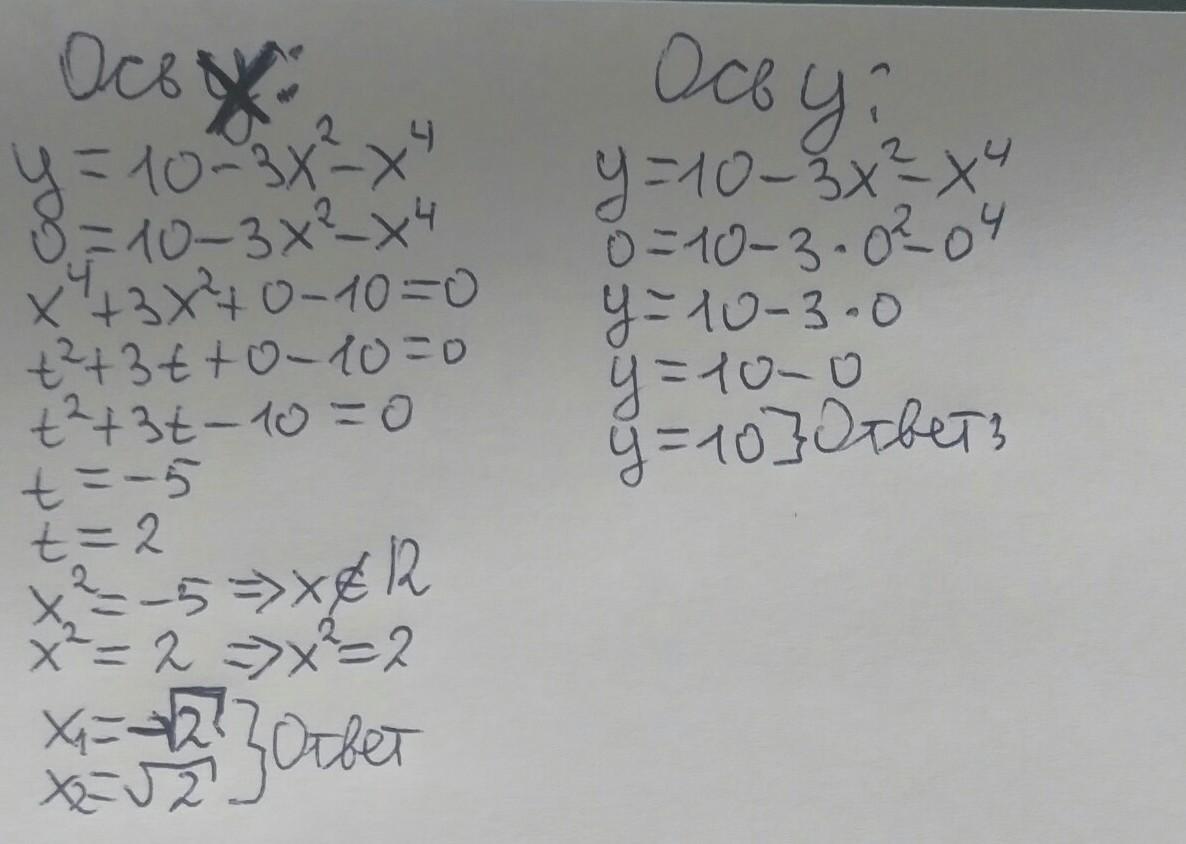 Ось x:
y = 10 - 3x² - x⁴
0 = 10 - 3x² - x⁴
x⁴ + 3x² + 0 - 10 = 0
t² + 3t + 0 - 10 = 0
t² + 3t - 10 = 0
t = -5
t = 2
x² = -5 => x ∉ R
x² = 2 => x² = 2
x₁ = -√2 } Ответ
x₂ = √2
Ось y:
y = 10 - 3x² - x⁴
0 = 10 - 3 · 0² - 0⁴
y = 10 - 3 · 0
y = 10 - 0
y = 10 } Ответ